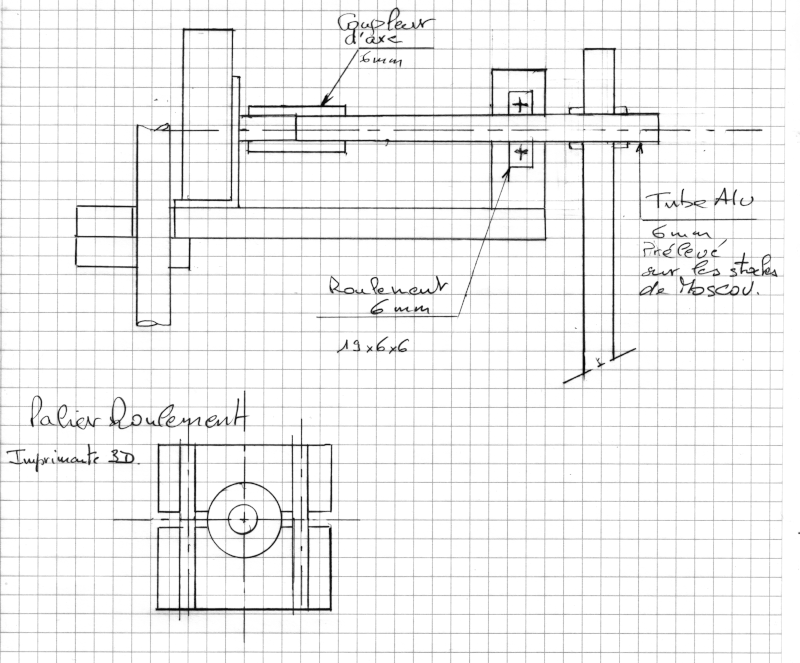 Coupleur
d'axe
6mm
Tube Alu
6mm
Prélevé
sur les stocks
de Moscou.
Roulement
6 mm
19x6x6
Palier Roulement
Imprimante 3D.